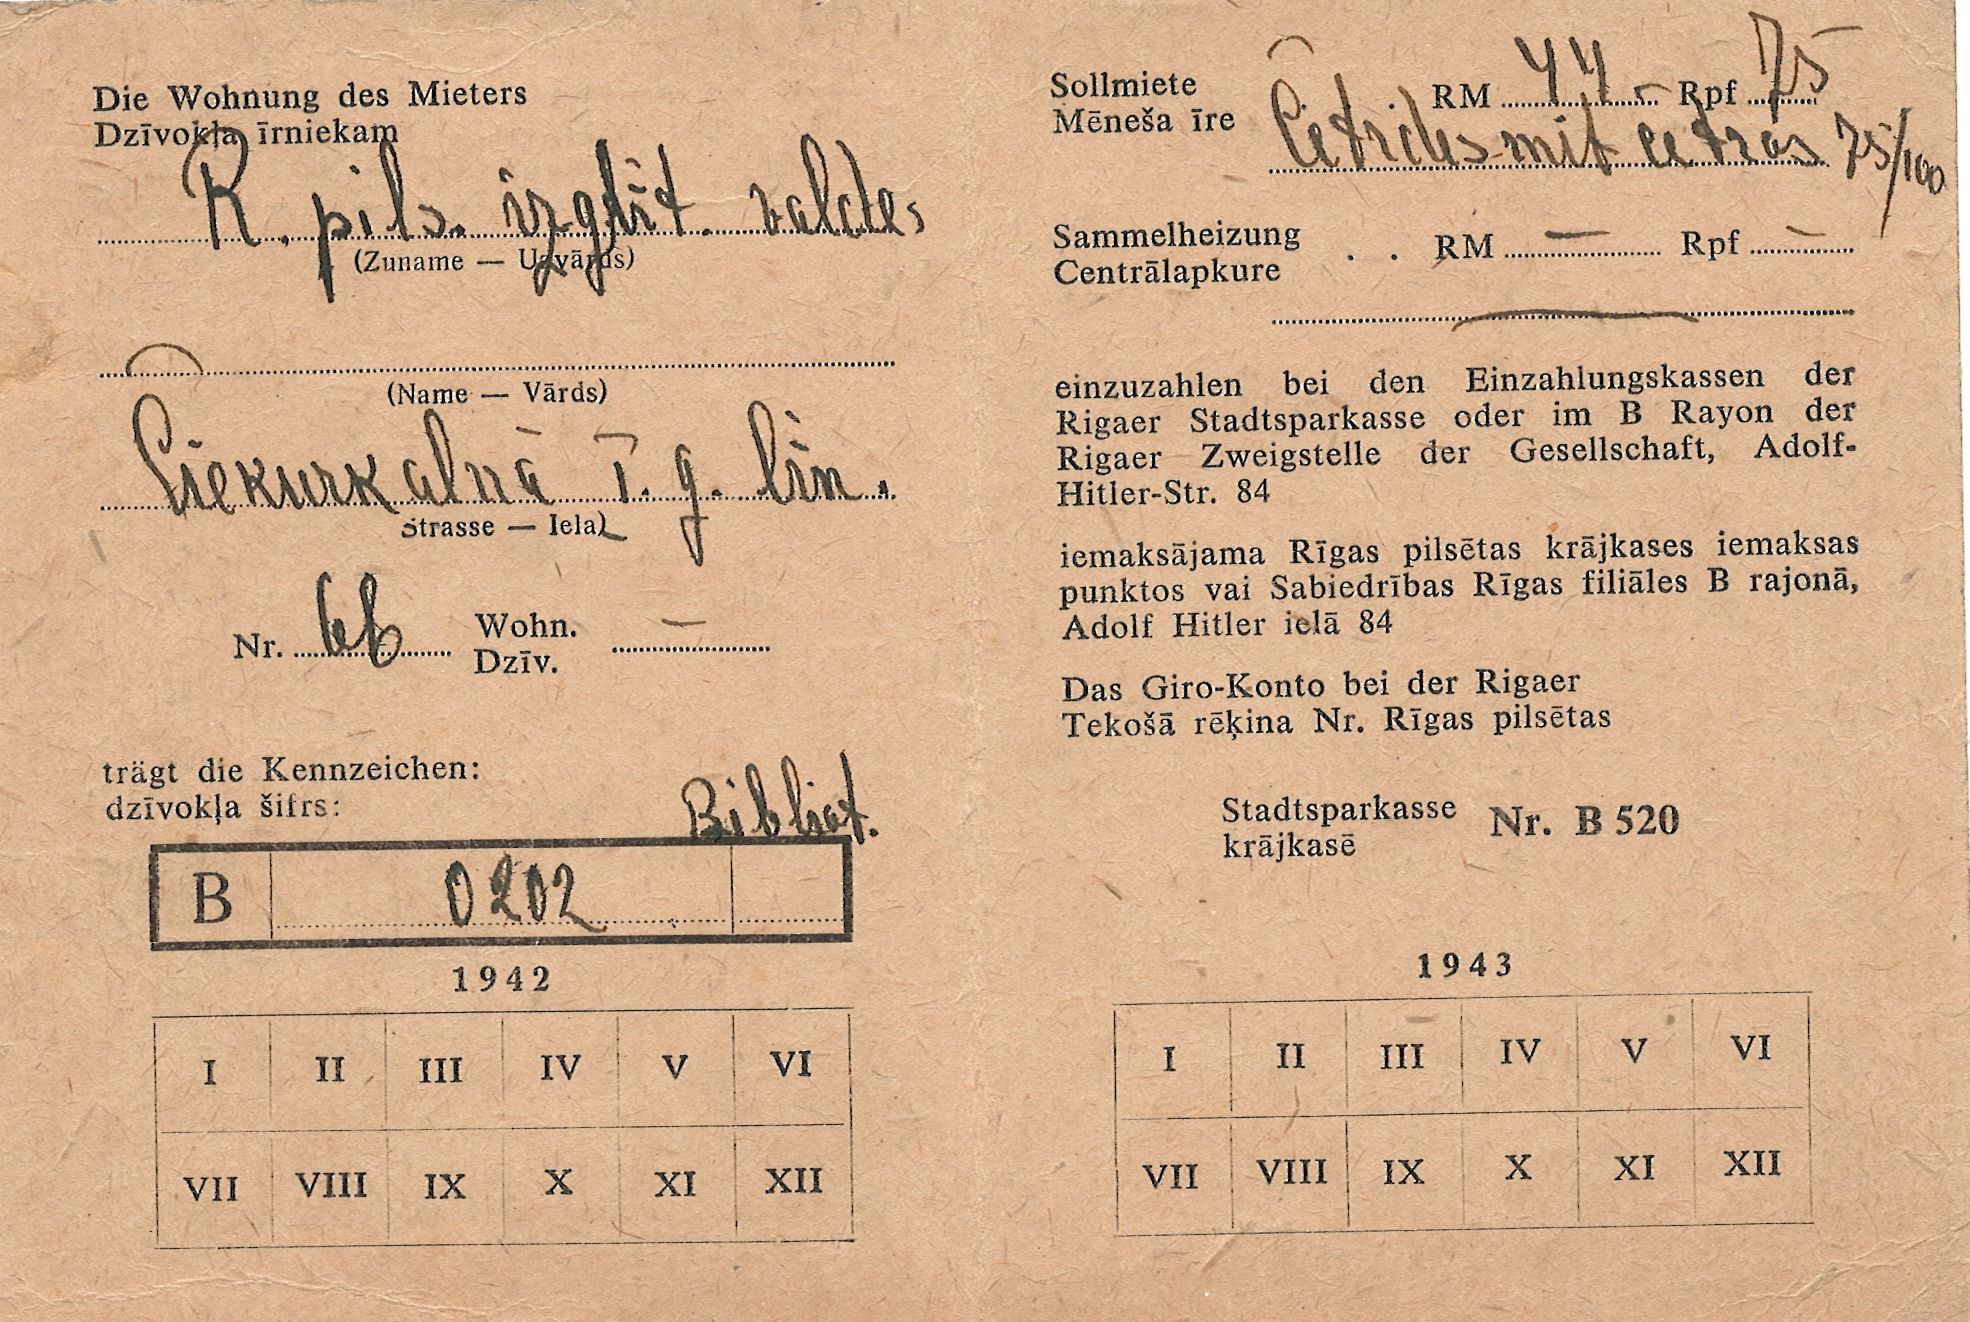 Die Wohnung des Mieters
Dzīvokļa īrniekam
R. pils. izglīt. valdes
(Zuname — Uzvārds)
(Name — Vārds)
Ciekurkalnā I. g. līn.
Strasse — Iela
Nr. 6b Wohn. —
Dzīv.
trägt die Kennzeichen:
dzīvokļa šifrs:
Bibliot.
B 0202
1942
I II III IV V VI
VII VIII IX X XI XII
Sollmiete
Mēneša īre . RM 44 Rpf 75
Četrdesmit četras 75/100
Sammelheizung
Centrālapkure . . RM — Rpf —
einzuzahlen bei den Einzahlungskassen der
Rigaer Stadtsparkasse oder im B Rayon der
Rigaer Zweigstelle der Gesellschaft, Adolf-
Hitler-Str. 84
iemaksājama Rīgas pilsētas krājkases iemaksas
punktos vai Sabiedrības Rīgas filiāles B rajonā,
Adolf Hitler ielā 84
Das Giro-Konto bei der Rigaer
Tekošā rēķina Nr. Rīgas pilsētas
Stadtsparkasse Nr. B 520
krājkasē
1943
I II III IV V VI
VII VIII IX X XI XII